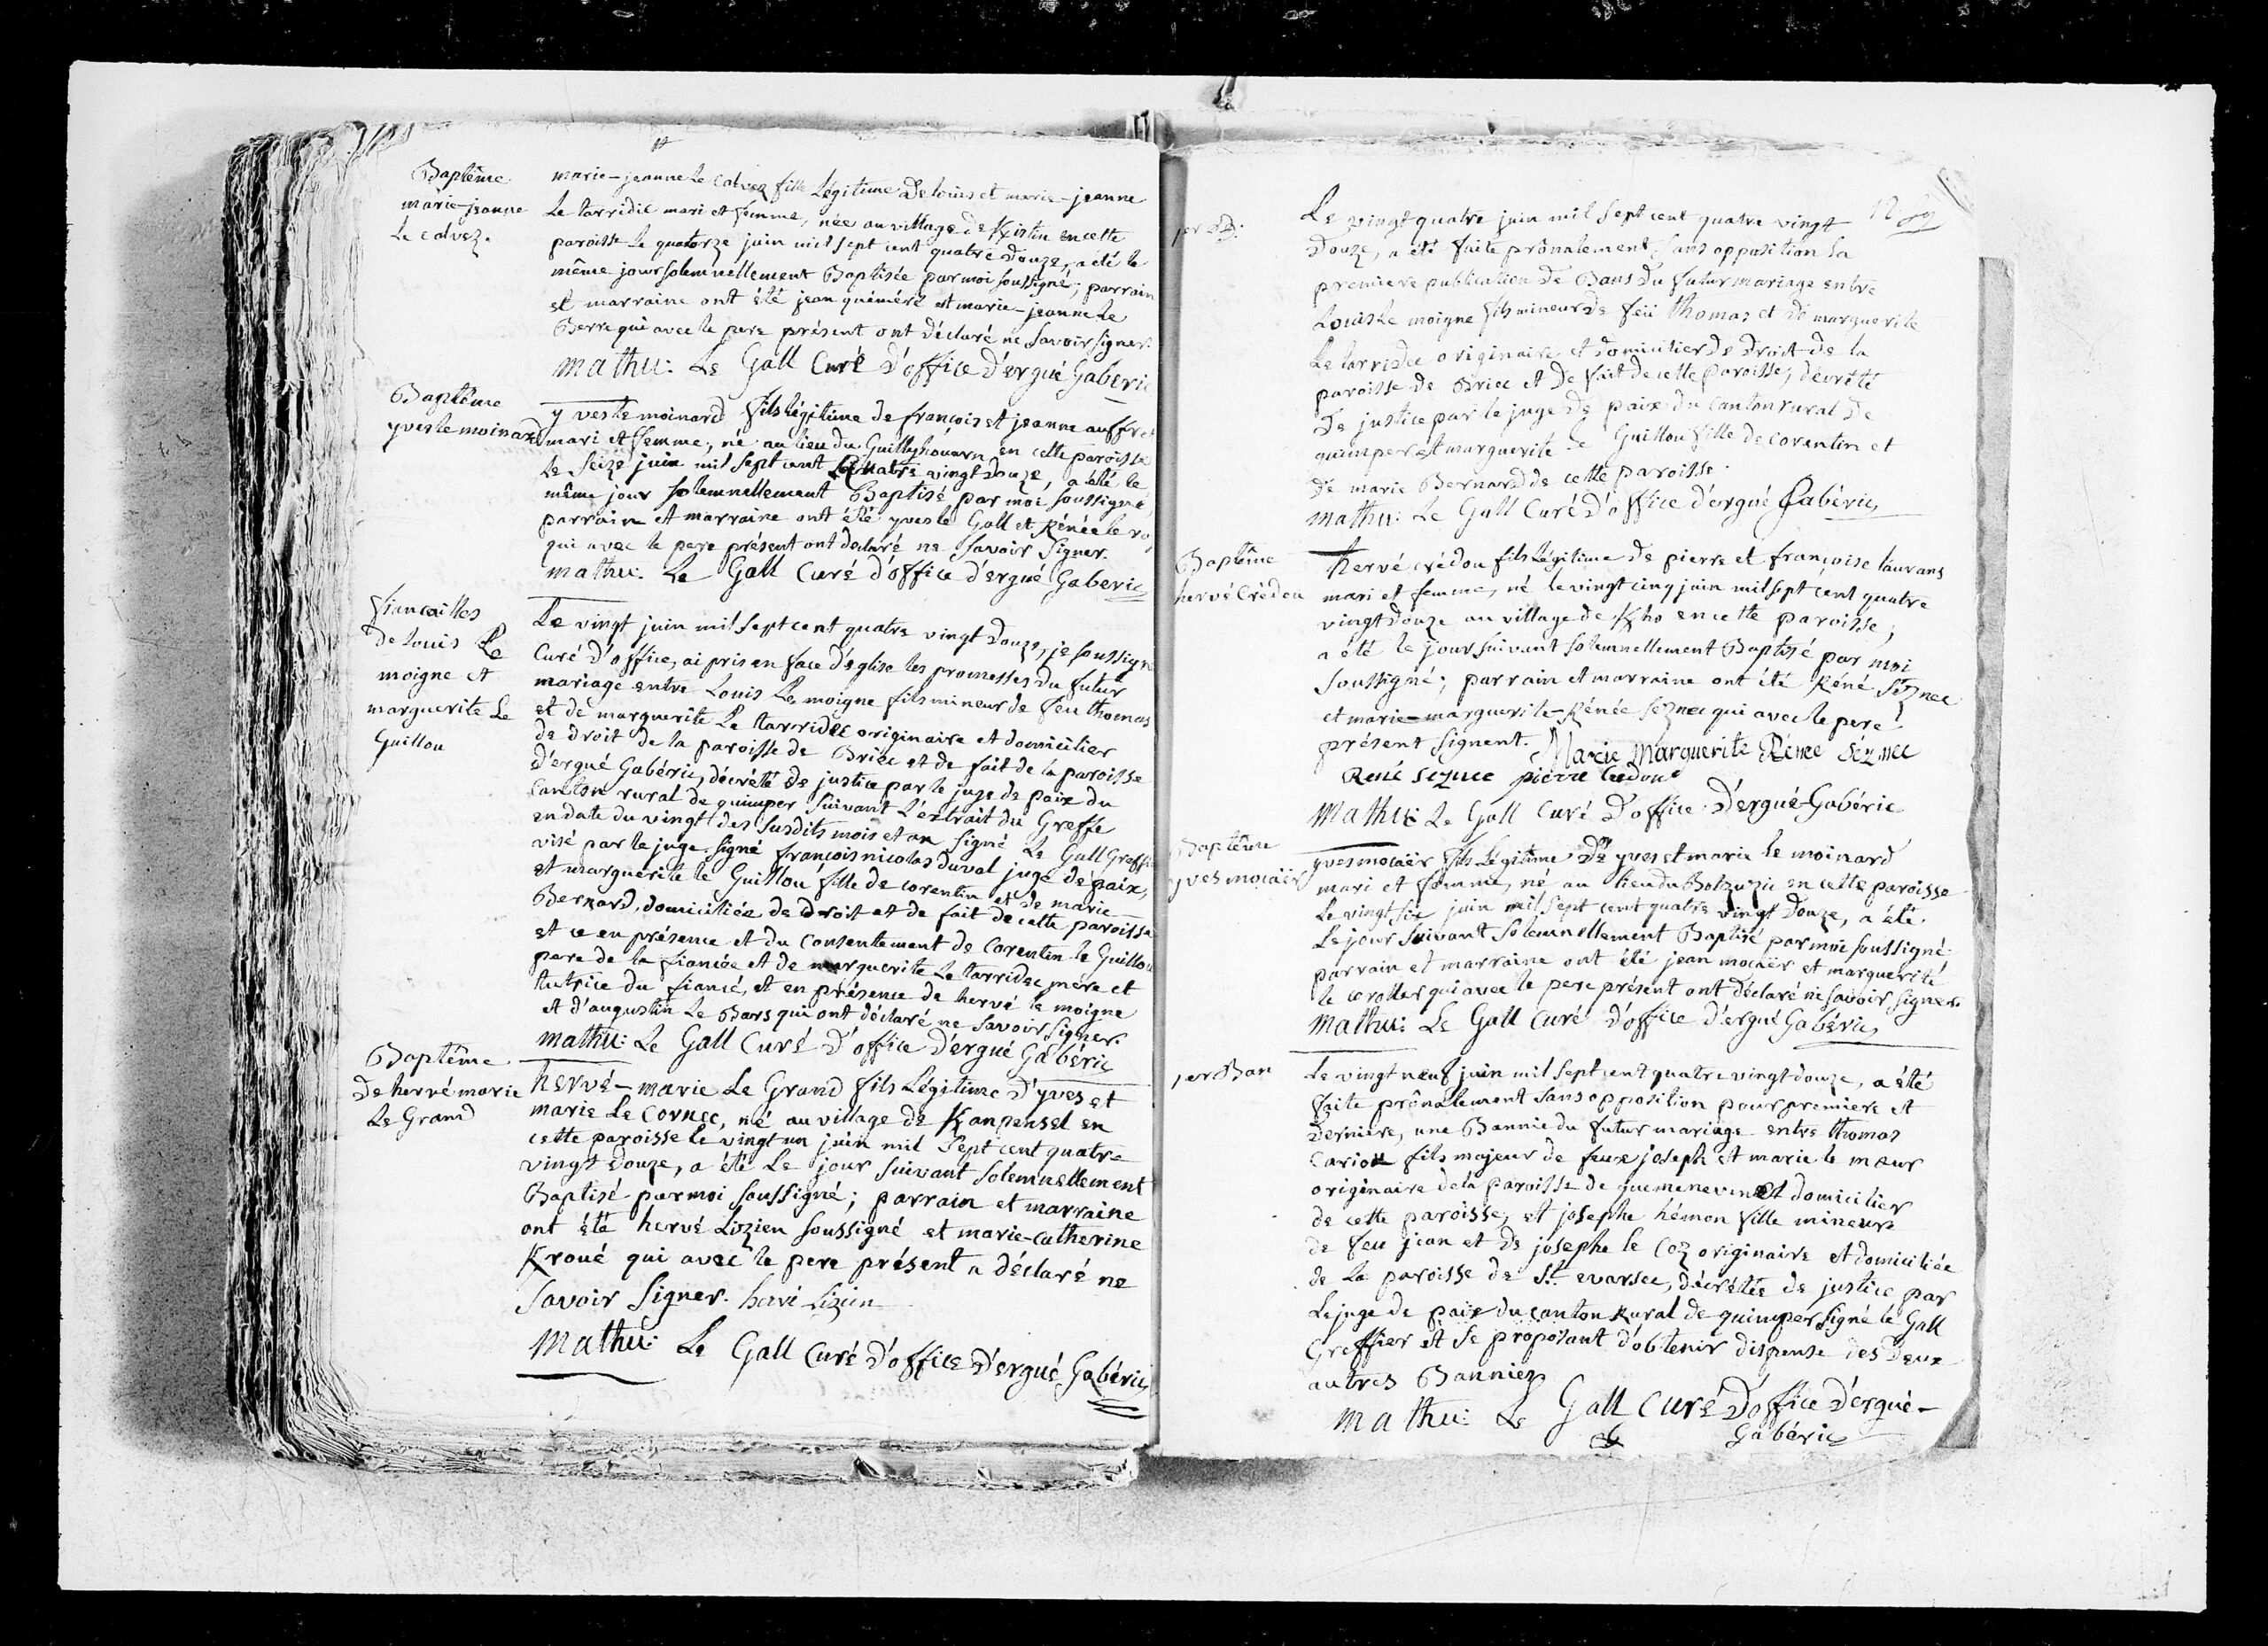 Baptême
marie-jeanne
Le calvez.
marie-jeanne le calvez fille légitime de louis et marie-jeanne
Le tarridec mari et femme, née au village de Kristin en cette
paroisse le quatorze juin mil sept cent quatre douze, a été le
même jour solemnellement Baptisée par moi soussigné; parrain
et marraine ont été jean quéméré et marie-jeanne Le
Berre qui avec le pere présent ont déclaré ne savoir signer.
mathu: Le Gall Curé d'office d'ergué Gaberic
Baptême
yves le moinard
yves le moinard fils légitime de françois et jeanne auffret
mari et femme, né au lieu du Guillyhouarn en cette paroisse
Le seize juin mil sept cent quatre vingt douze, a été le
même jour solemnellement Baptisé par moi soussigné,
parrain et marraine ont été yves le Gall et Rénée le roy
qui avec le pere présent ont déclaré ne savoir Signer.
mathu: Le Gall Curé d'office d'ergué Gaberic
fiancailles
de louis Le
moigne et
marguerite Le
Guillou
Le vingt juin mil sept cent quatre vingt douze, je soussigné
Curé d'office, ai pris en face d'église les promesses du futur
mariage entre Louis Le moigne fils mineur de feu thomas
et de marguerite Le tarridec originaire et domicilier
de droit de la paroisse de Briec et de fait de la paroisse
d'ergué Gabéric, décrété de justice par le juge de paix du
Canton rural de quimper suivant l'extrait du Greffe
en date du vingt des susdits mois et an signé Le Gall Greffier
visé par le juge signé françois nicolas duval juge de paix,
et marguerite le Guillou fille de corentin et de marie
Bernard, domiciliée de droit et de fait de cette paroisse
et ce en présence et du consentement de Corentin le Guillou
pere de la fiancée et de marguerite Le tarridec mére et
tutrice du fiancé, et en présence de hervé le moigne
et d'augustin Le Bars qui ont déclaré ne savoir signer.
mathu: Le Gall Curé d'office d'ergué Gabéric
Baptême
de hervé marie
Le Grand
hervé-marie Le Grand fils légitime d'yves et
marie Le Cornec, né au village de Kanpensel en
cette paroisse le vingt un juin mil sept cent quatre
vingt douze, a été Le jour suivant solemnellement
Baptisé par moi soussigné; parrain et marraine
ont été hervé Lizien soussigné et marie-catherine
Kroué qui avec le pere présent a déclaré ne
savoir Signer. hervé Lizien
mathu: Le Gall Curé d'office d'ergué Gabéric
12
1er B:
Le vingt quatre juin mil sept cent quatre vingt
douze, a été faite prônalement sans opposition la
premiere publication de Bans du futur mariage entre
Louis Le moigne fils mineur de feu thomas et de marguerite
Le tarridec originaire et domicilier de droit de la
paroisse de Briec et de fait de cette paroisse, décrété
de justice par le juge de paix du canton rural de
quimper et marguerite le Guillou fille de corentin et
de marie Bernard de cette paroisse.
mathu: Le Gall Curé d'office d'ergué Gabéric
Baptême
hervé Crédou
hervé crédou fils légitime de pierre et françoise laurans
mari et femme, né le vingt cinq juin mil sept cent quatre
vingt douze au village de Kho en cette paroisse;
a été le jour suivant solemnellement Baptisé par moi
soussigné; parrain et marraine ont été Réné Séznec
et marie-marguerite-Rénée Séznec qui avec le pere
présent signent. Marie Marguerite Rénee Séznec
René Seznec pierre credou
mathu: Le Gall Curé d'office d'ergué-Gabéric
Baptême
yves mocaër
yves mocaër fils légitime de yves et marie le moinard
mari et femme, né au lieu du Botzuzic en cette paroisse
le vingt six juin mil sept cent quatre vingt douze, a été
le jour suivant solemnellement Baptisé par moi soussigné
parrain et marraine ont été jean mocaër et marguerite
le coroller qui avec le pere présent ont déclaré ne savoir signer.
mathu: Le Gall Curé d'office d'ergué Gabéric
1er Ban
Le vingt neuf juin mil sept cent quatre vingt douze, a été
faite prônalement sans opposition pour premiere et
derniere, une Bannie du futur mariage entre thomas
Cariou fils majeur de feux joseph et marie le mœur
originaire de la paroisse de guemeneven et domicilier
de cette paroisse, et josephe hémon fille mineure
de feu jean et de josephe le Coz originaire et domiciliée
de la paroisse de St. evarzec, décrétée de justice par
le juge de paix du canton Rural de quimper signé le Gall
Greffier et se proposant d'obtenir dispense des deux
autres Bannies
mathu: Le Gall Curé d'office d'ergué-
Gabéric